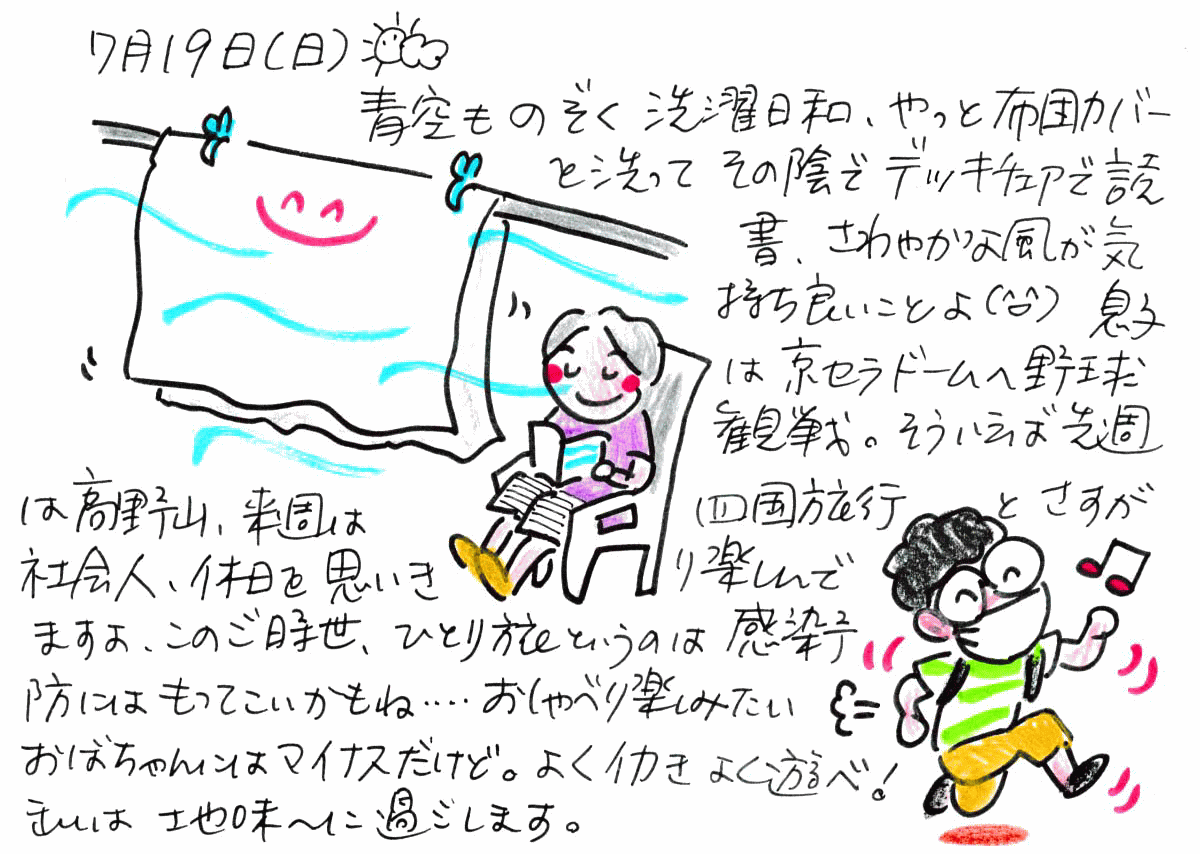 7月19日(日)
青空ものぞく洗濯日和、やっと布団カバー
と洗って その陰でデッキチェアで読
書、さわやかな風が気
持ち良いことよ(^^) 息子
は京セラドームへ野球
観戦。そういえば先週
は高野山、来週は四国旅行とさすが
社会人、休日を思いきり楽しんで
ますよ、このご時世、ひとり旅というのは感染予
防にはもってこいかもね‥‥おしゃべり楽しみたい
おばちゃんにはマイナスだけど。よく働きよく遊べ!
私は地味〜に過ごします。